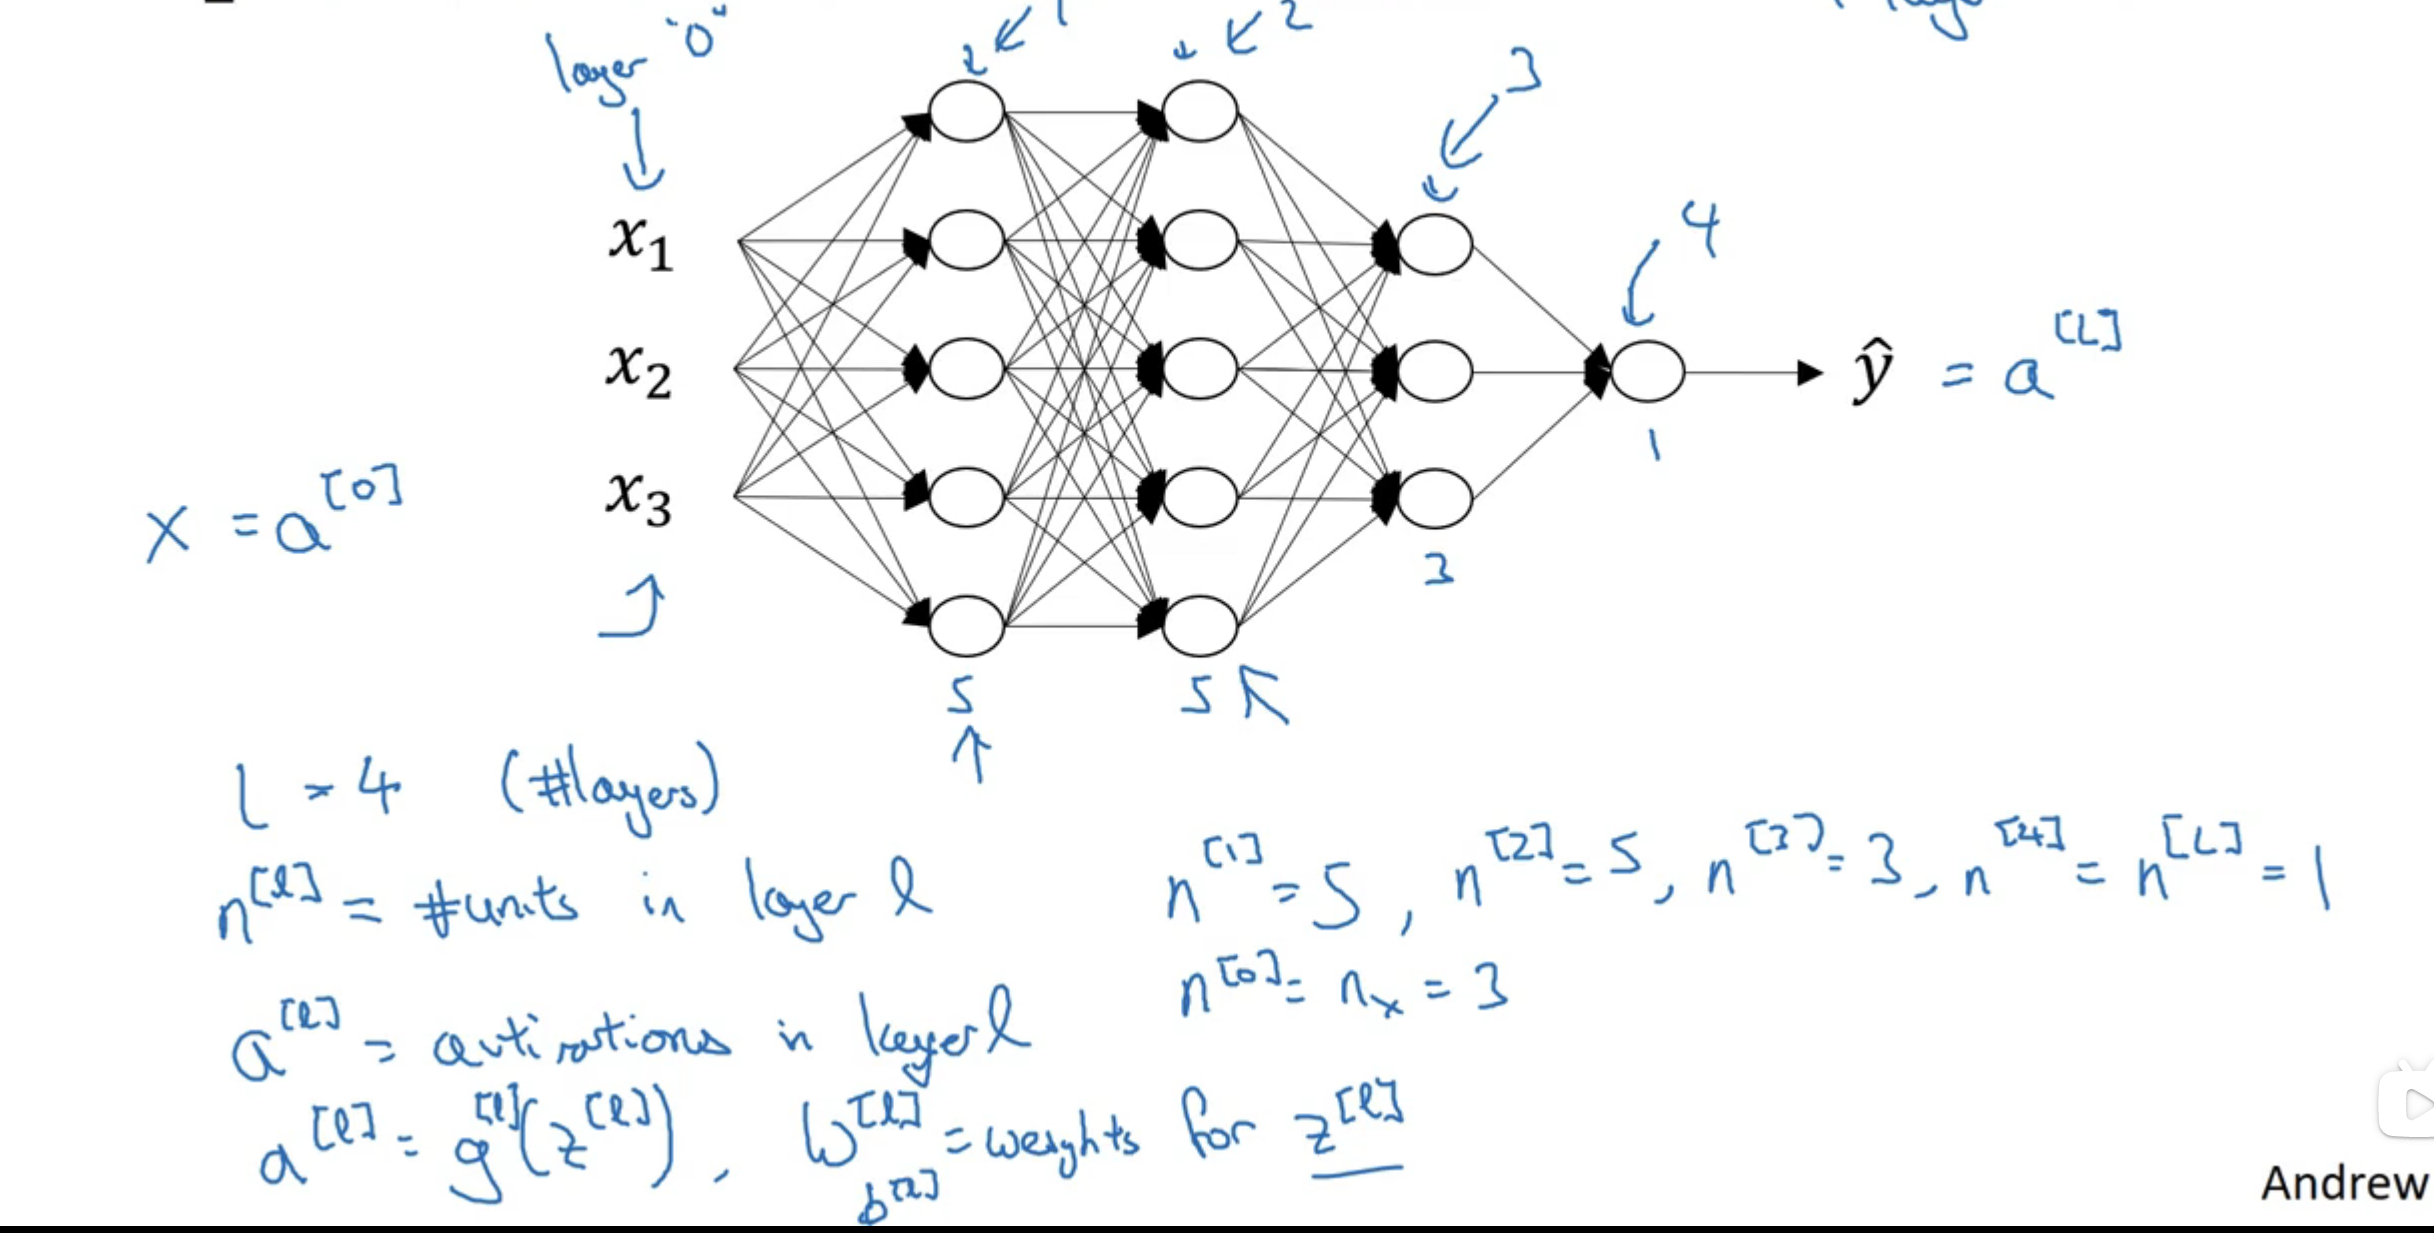 layer "0"
1
2
3
4
x₁
x₂
x₃
ŷ = a^[L]
1
X = a^[0]
3
5
5
L = 4 (#layers)
n^[l] = #units in layer l
n^[1] = 5, n^[2] = 5, n^[3] = 3, n^[4] = n^[L] = 1
n^[0] = nₓ = 3
a^[l] = activations in layer l
a^[l] = g^[l](z^[l]), W^[l] = weights for z^[l]
b^[l]
Andrew